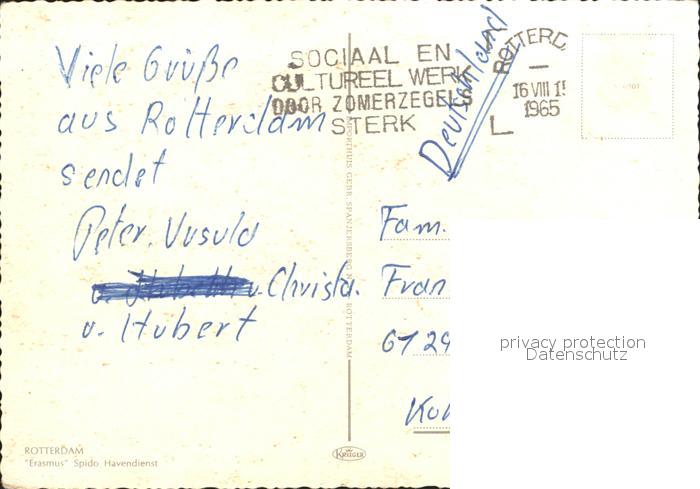 Viele Grüße
aus Rotterdam
sendet
Peter, Ursula
u. Christa.
u. Hubert
SOCIAAL EN
CULTUREEL WERK
DOOR ZOMERZEGELS
STERK
ROTTERD
16 VIII 1
1965
L
Deutschland
Fam.
Fran
6129
Kol
privacy protection
Datenschutz
ROTTERDAM
"Erasmus" Spido Havendienst
KRÜGER